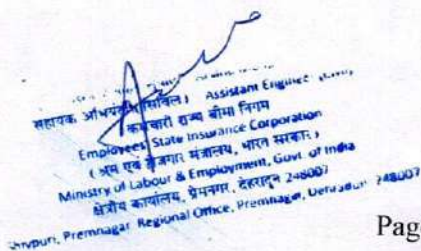 सहायक अभियंता (सिविल) Assistant Engineer (Civil)
कर्मचारी राज्य बीमा निगम
Employees' State Insurance Corporation
( श्रम एवं रोजगार मंत्रालय, भारत सरकार )
Ministry of Labour & Employment, Govt. of India
क्षेत्रीय कार्यालय, प्रेमनगर, देहरादून 248007
Premnagar Regional Office, Premnagar, Dehradun 248007
Pag